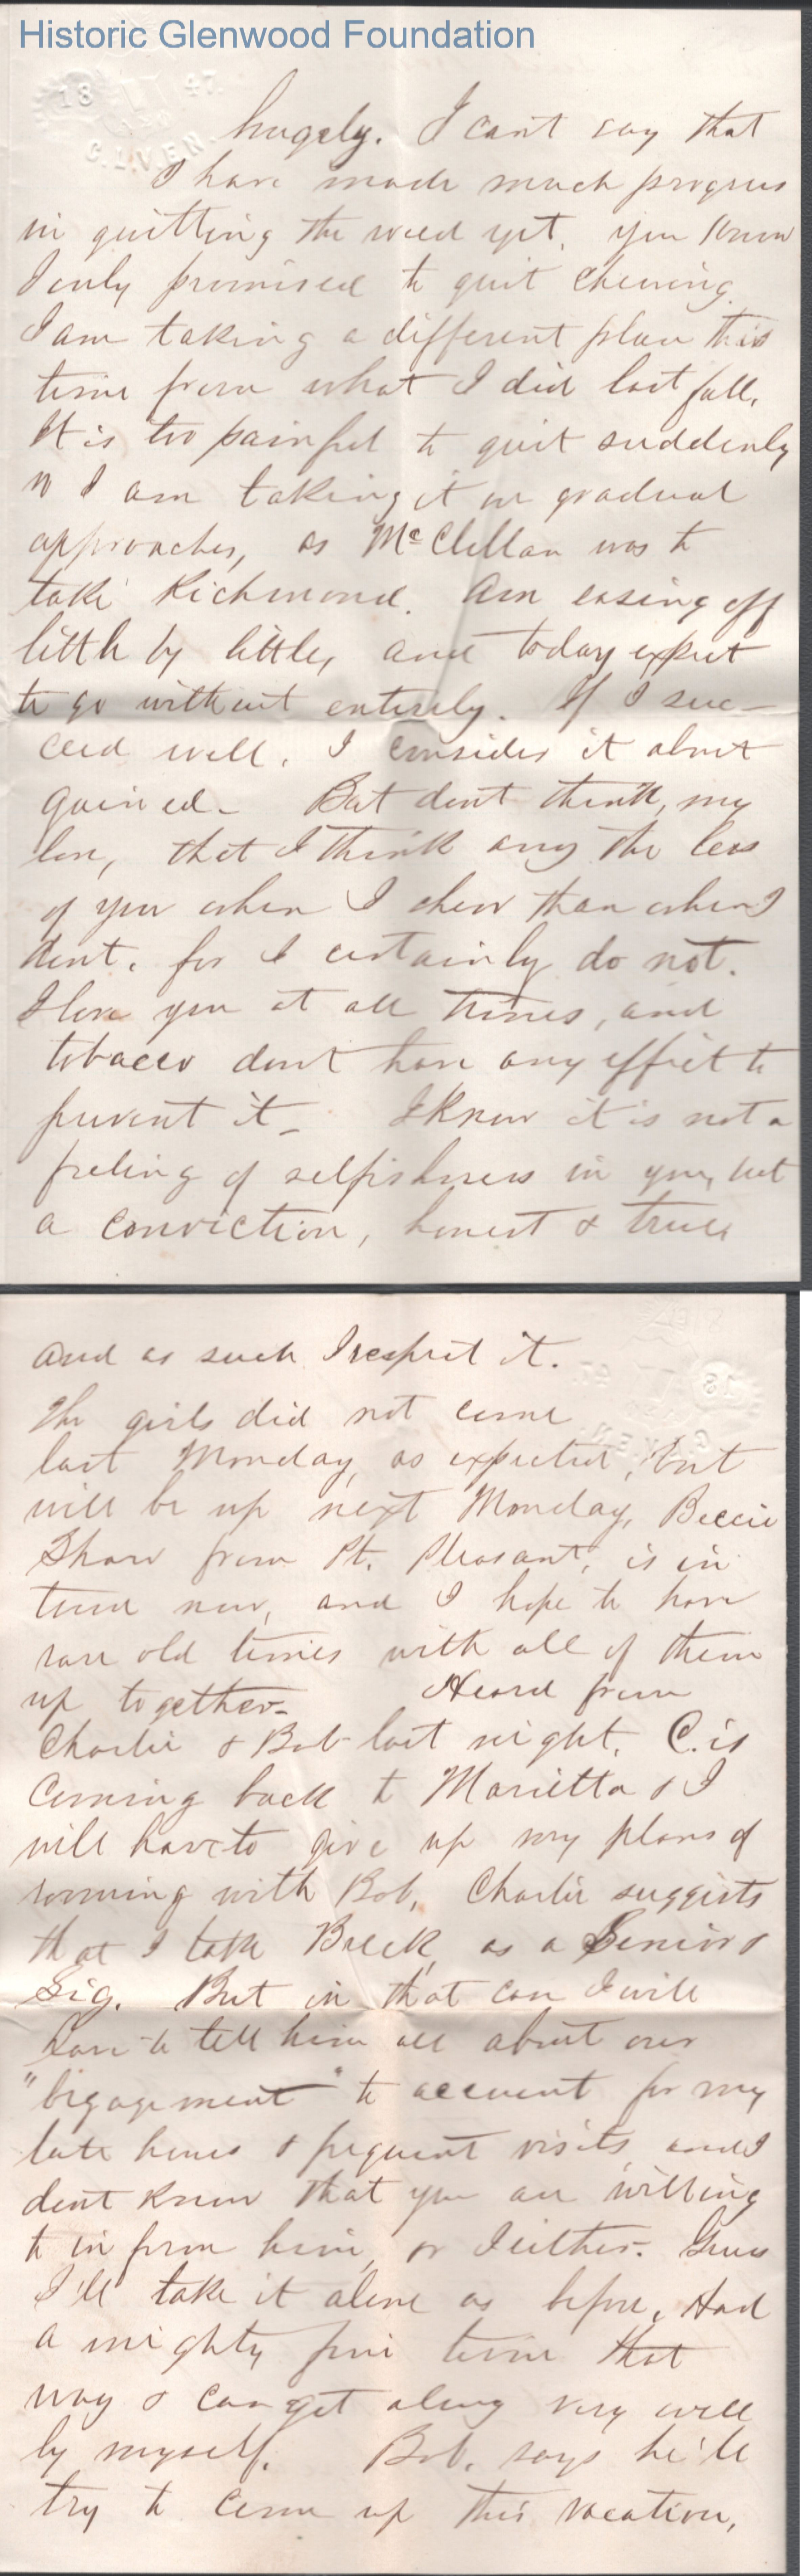 Historic Glenwood Foundation
18 47
G.I.V.E.N.
hugely. I cant say that
I have made much progress
in quitting the weed yet, you know
I only promised to quit chewing.
I am taking a different plan this
time from what I did last fall.
It is too painful to quit suddenly
so I am taking it in gradual
approaches, as McClellan was to
take Richmond. Am easing off
little by little, and today expect
to go without entirely. If I suc-
ceed well, I consider it about
gained- But dont think, my
love, that I think any the less
of you when I chew than when I
dont, for I certainly do not.
I love you at all times, and
tobacco dont have any effect to
prevent it- I know it is not a
feeling of selfishness in you, but
a conviction, honest & true
and as such I respect it.
The girls did not come
last Monday, as expected, but
will be up next Monday, Beccie
Shaw from Pt. Pleasant, is in
town now, and I hope to have
rare old times with all of them
up together- Heard from
Charlie & Bob last night. C. is
coming back to Marietta & I
will have to give up my plans of
rooming with Bob. Charlie suggests
that I take Breck, as a Senior &
Sig. But in that case I will
have to tell him all about our
"bigagement" to account for my
late hours & frequent visits, and I
dont know that you are willing
to inform him, or I either- Guess
I'll take it alone as before. Had
a mighty fine time that
way & can get along very well
by myself. Bob. says he'll
try to come up this vacation,